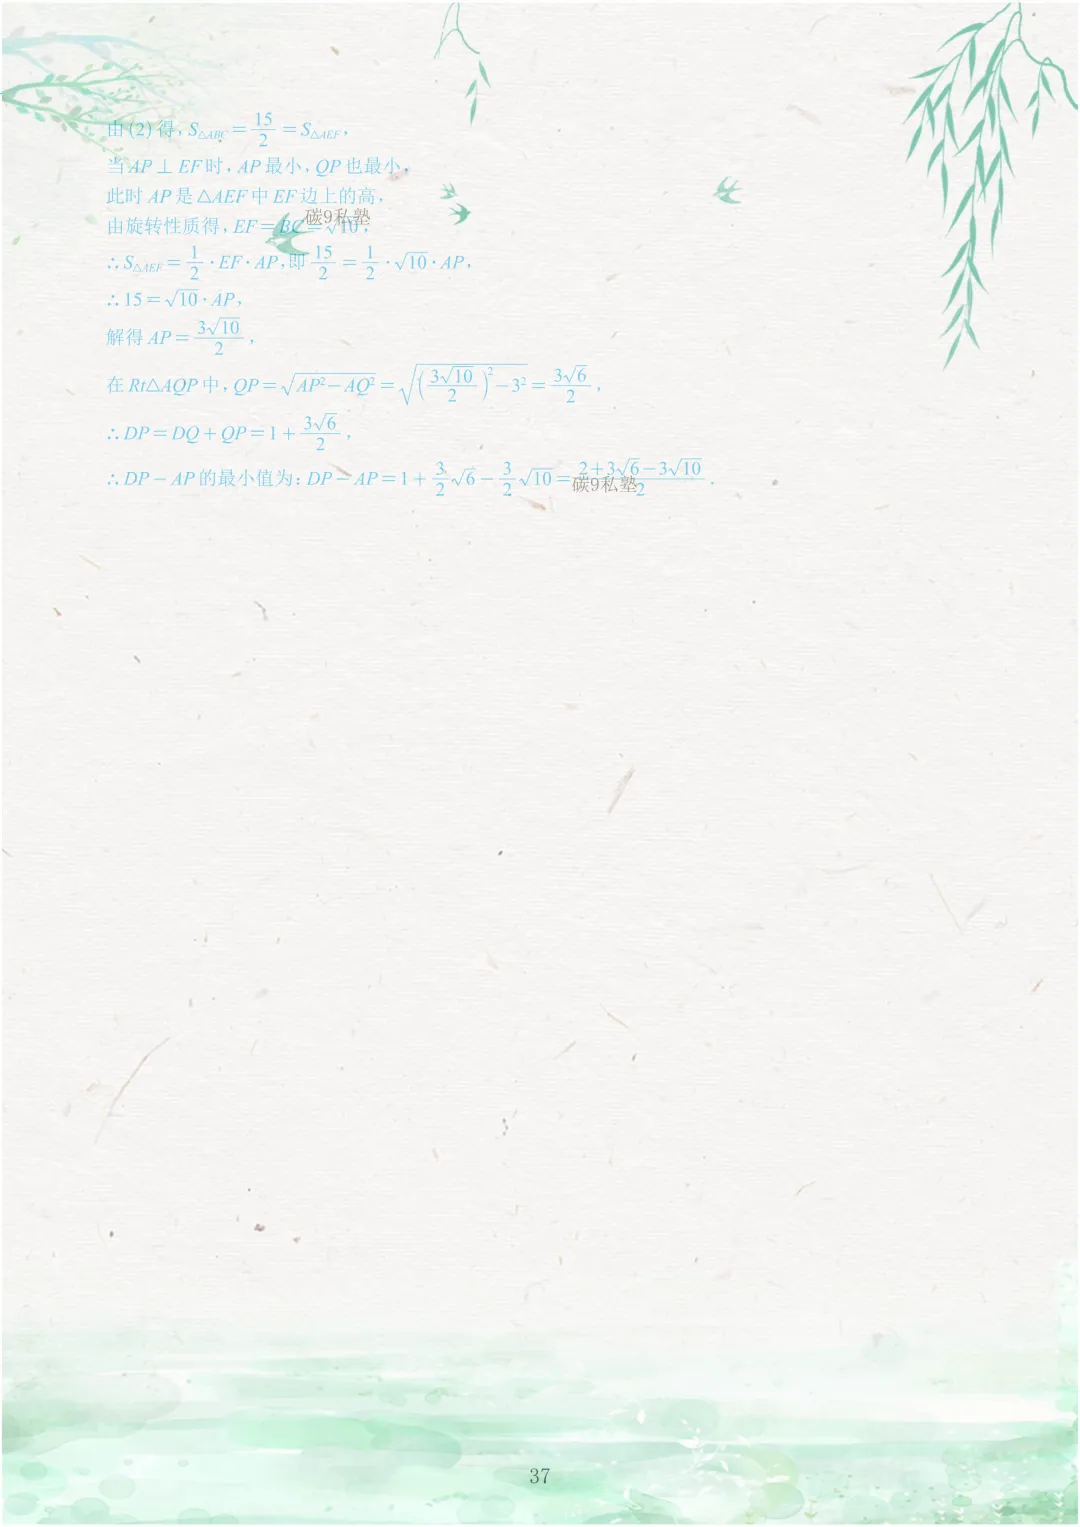 由(2)得,S△ABC=15/2=S△AEF,
当AP⊥EF时,AP最小,QP也最小,
此时AP是△AEF中EF边上的高,
碳9私塾
由旋转性质得,EF=BC=√10,
∴S△AEF=1/2·EF·AP,即15/2=1/2·√10·AP,
∴15=√10·AP,
解得AP=3√10/2,
在Rt△AQP中,QP=√(AP²-AQ²)=√((3√10/2)²-3²)=3√6/2,
∴DP=DQ+QP=1+3√6/2,
∴DP-AP的最小值为:DP-AP=1+3/2√6-3/2√10=(2+3√6-3√10)/2.
碳9私塾
37